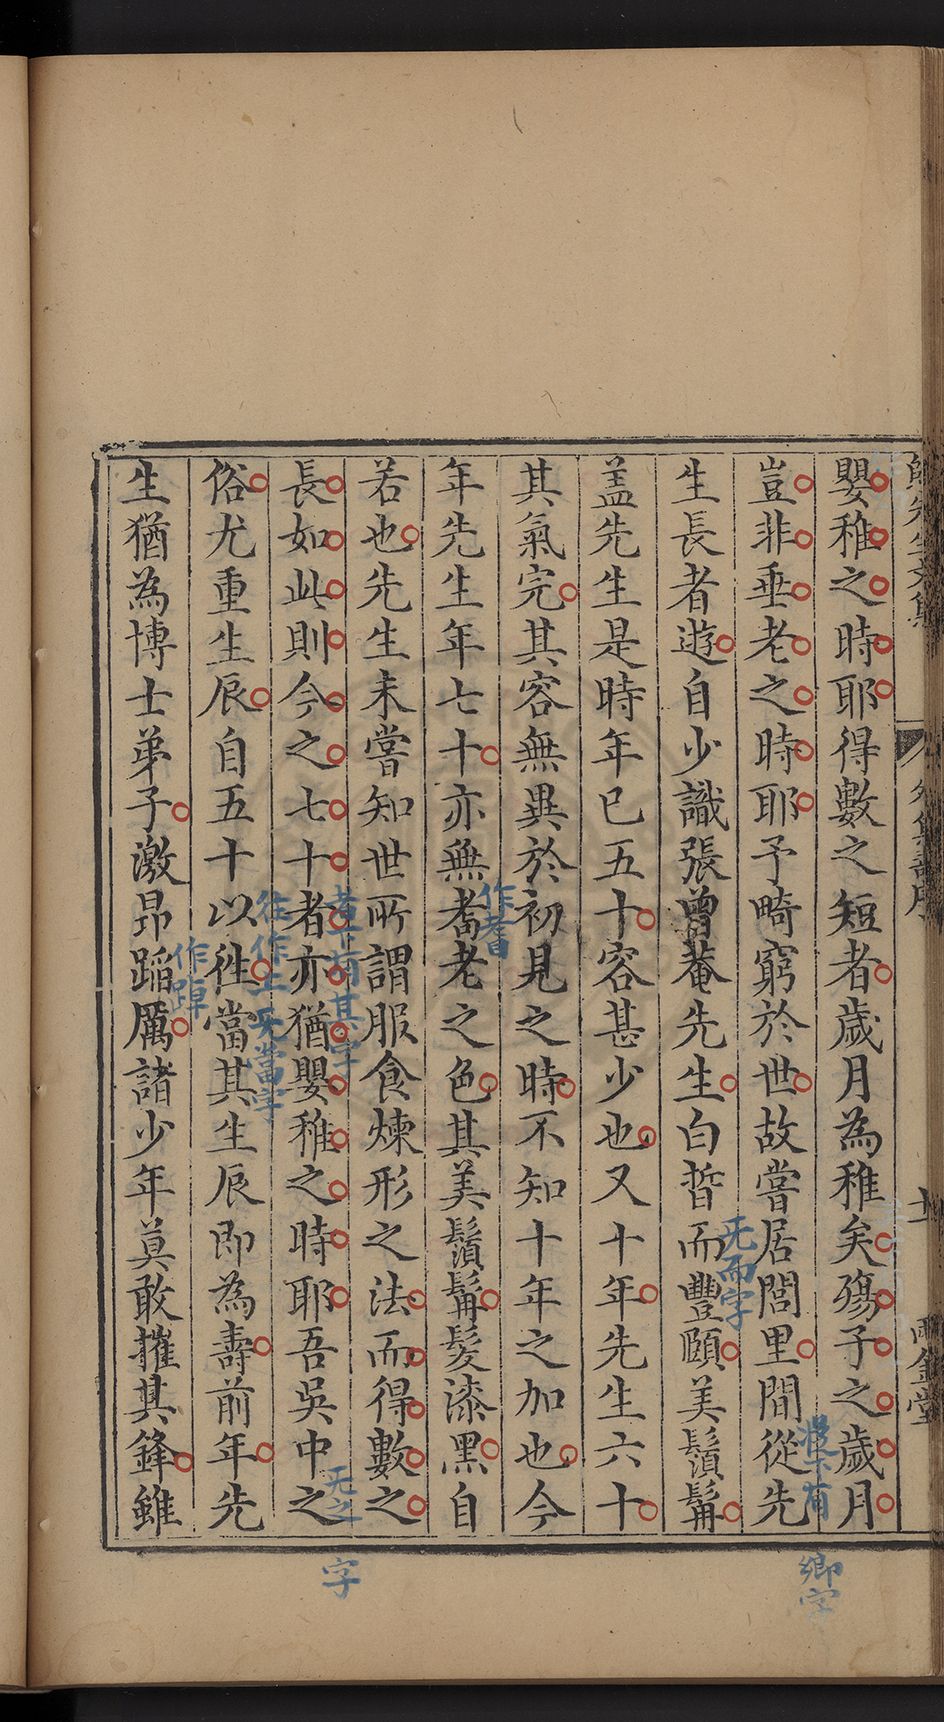 嬰稚之時耶得數之短者歲月為稚矣殤子之歲月
豈非垂老之時耶予畸窮於世故嘗居閭里間從先
生長者遊自少識張曾菴先生白晳而豐頤美鬚髯
盖先生是時年已五十容甚少也又十年先生六十
其氣完其容無異於初見之時不知十年之加也今
年先生年七十亦無耆老之色其美鬚髯髮漆黑自
若也先生未嘗知世所謂服食煉形之法而得數之
長如此則今之七十者亦猶嬰稚之時耶吾吳中之
俗尤重生辰自五十以徃當其生辰即為壽前年先
生猶為博士弟子激昂蹈厲諸少年莫敢摧其鋒雖
鄉字
无而字
作耆
无之
字
往作上无當字
作踔